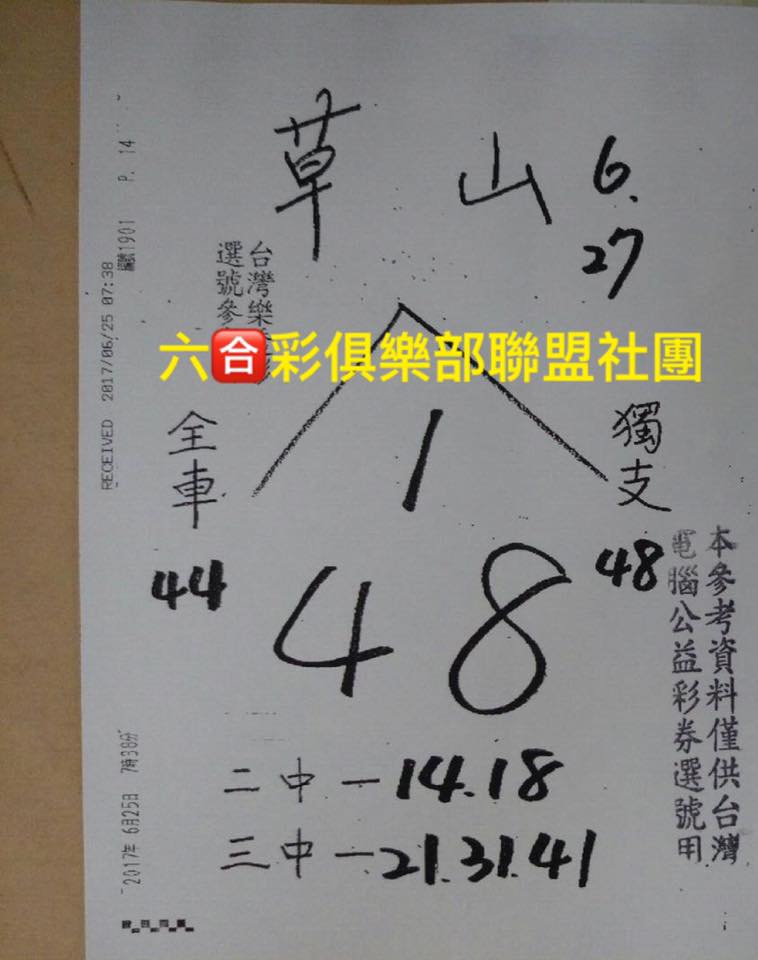 草山 6.
27
台灣樂
選號參
六合彩俱樂部聯盟社團
1
全車
獨支
44
48
4 8
二中一14.18
三中一21.31.41
本參考資料僅供台灣
電腦公益彩券選號用
RECEIVED 2017/06/25 07:38
1901 P. 14
2017年 6月25日 7時38分